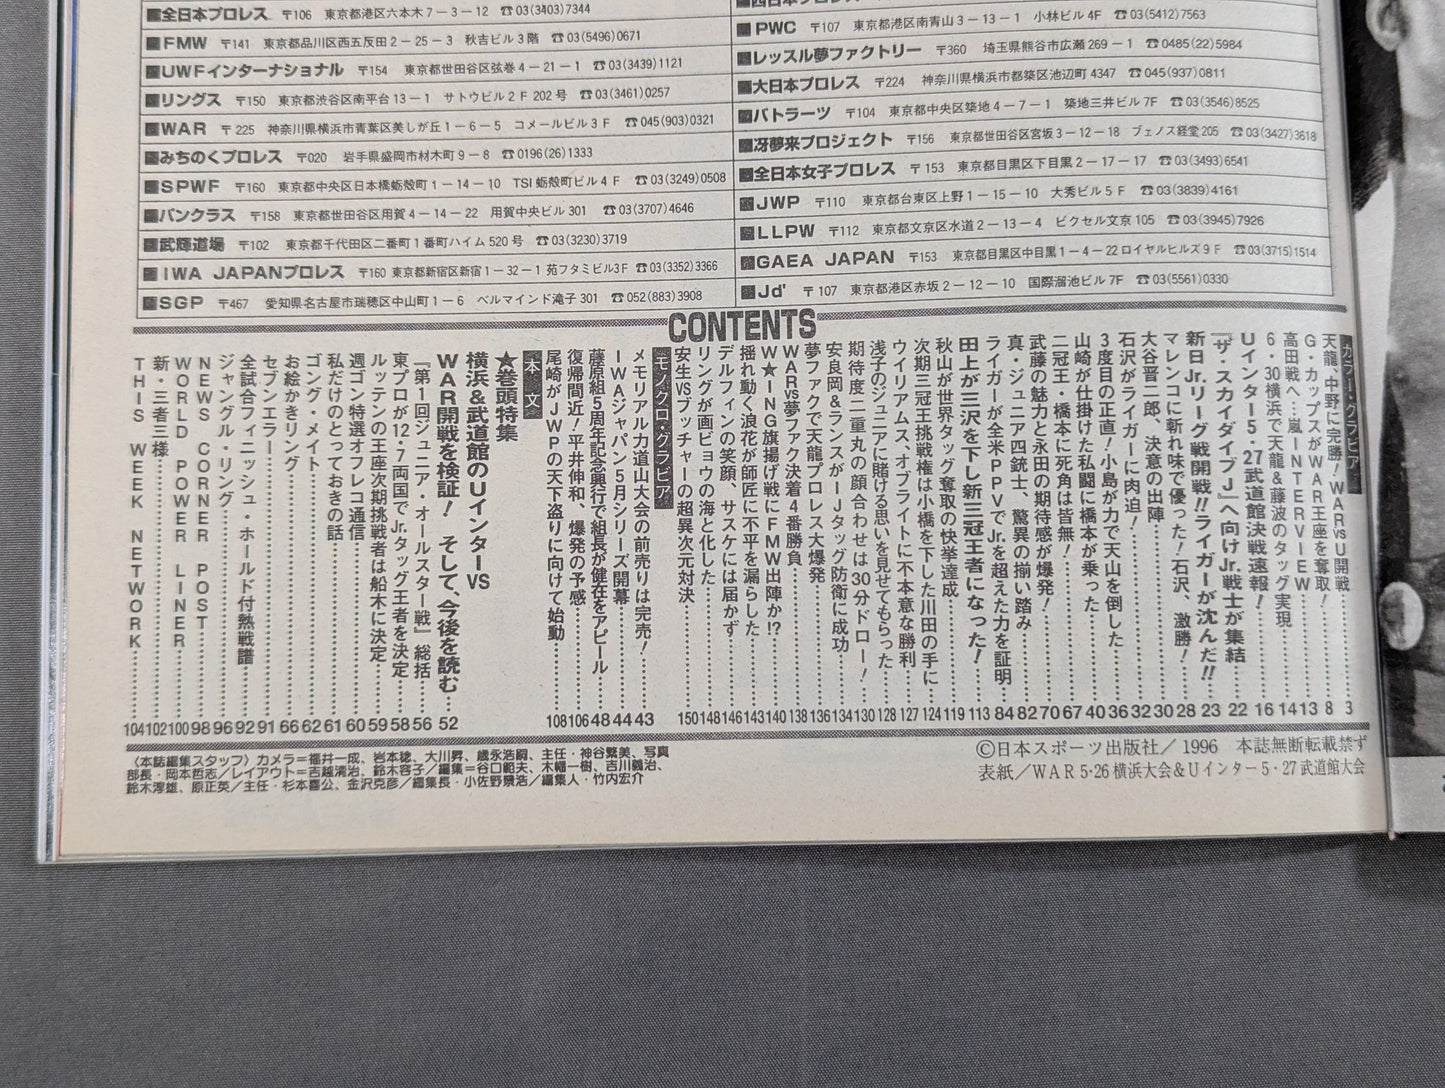 ■全日本プロレス 〒106 東京都港区六本木7-3-12 ☎03(3403)7344
■FMW 〒141 東京都品川区西五反田2-25-3 秋吉ビル3階 ☎03(5496)0671
■UWFインターナショナル 〒154 東京都世田谷区弦巻4-21-1 ☎03(3439)1121
■リングス 〒150 東京都渋谷区南平台13-1 サトウビル2F202号 ☎03(3461)0257
■WAR 〒225 神奈川県横浜市青葉区美しが丘1-6-5 コメールビル3F ☎045(903)0321
■みちのくプロレス 〒020 岩手県盛岡市材木町9-8 ☎0196(26)1333
■SPWF 〒160 東京都中央区日本橋蛎殻町1-14-10 TSI蛎殻町ビル4F ☎03(3249)0508
■パンクラス 〒158 東京都世田谷区用賀4-14-22 用賀中央ビル301 ☎03(3707)4646
■武輝道場 〒102 東京都千代田区二番町1番町ハイム520号 ☎03(3230)3719
■IWA JAPANプロレス 〒160 東京都新宿区新宿1-32-1 苑フタミビル3F ☎03(3352)3366
■SGP 〒467 愛知県名古屋市瑞穂区中山町1-6 ベルマインド滝子301 ☎052(883)3908
■PWC 〒107 東京都港区南青山3-13-1 小林ビル4F ☎03(5412)7563
■レッスル夢ファクトリー 〒360 埼玉県熊谷市広瀬269-1 ☎0485(22)5984
■大日本プロレス 〒224 神奈川県横浜市都築区池辺町4347 ☎045(937)0811
■バトラーツ 〒104 東京都中央区築地4-7-1 築地三井ビル7F ☎03(3546)8525
■冴夢来プロジェクト 〒156 東京都世田谷区宮坂3-12-18 ブェノス経堂205 ☎03(3427)3618
■全日本女子プロレス 〒153 東京都目黒区下目黒2-17-17 ☎03(3493)6541
■JWP 〒110 東京都台東区上野1-15-10 大秀ビル5F ☎03(3839)4161
■LLPW 〒112 東京都文京区水道2-13-4 ビクセル文京105 ☎03(3945)7926
■GAEA JAPAN 〒153 東京都目黒区中目黒1-4-22ロイヤルヒルズ9F ☎03(3715)1514
■Jd' 〒107 東京都港区赤坂2-12-10 国際溜池ビル7F ☎03(5561)0330
CONTENTS
カラー・グラビア
天龍、中野に完勝！WARvsU開戦……3
G・カップスがWAR王座を奪取！……8
高田戦へ…嵐INTERVIEW……13
6・30横浜で天龍&藤波のタッグ実現……14
Uインター5・27武道館決戦速報！……16
『ザ・スカイダイブJ』へ向けJr.戦士が集結……22
新日Jr.リーグ戦開戦!!ライガーが沈んだ!!……23
マレンコに斬れ味で優った！石沢、激勝！……28
大谷晋二郎、決意の出陣……30
石沢がライガーに肉迫！……32
3度目の正直！小島が力で天山を倒した……36
山崎が仕掛けた私闘に橋本が乗った……40
二冠王・橋本に死角は皆無！……67
武藤の魅力と永田の期待感が爆発！……70
真・ジュニア四銃士、驚異の揃い踏み……82
ライガーが全米PPVでJr.を超えた力を証明……84
田上が三沢を下し新三冠王者になった！……113
秋山が世界タッグ奪取の快挙達成……119
次期三冠王挑戦権は小橋を下した川田の手に……124
ウイリアムス、オブライトに不本意な勝利……127
浅子のジュニアに賭ける思いを見せてもらった……128
期待度二重丸の顔合わせは30分ドロー！……130
安良岡&ランスがIJタッグ防衛に成功……134
夢ファクで天龍プロレス大爆発……136
WARvs夢ファク決着4番勝負……138
W★ING旗揚げ戦にFMW出陣か!?……140
揺れ動く浪花が師匠に不平を漏らした……143
デルフィンの笑顔、サスケには届かず……146
リングが画ビョウの海と化した……148
安生vsブッチャーの超異次元対決……150
モノクログラビア
メモリアル力道山大会の前売りは完売！……43
IWAジャパン5月シリーズ開幕……44
藤原組5周年記念興行で組長が健在をアピール……48
復帰間近！平井伸和、爆発の予感……106
尾崎がJWPの天下盗りに向けて始動……108
本文
★巻頭特集
横浜&武道館のUインターvs
WAR開戦を検証！ そして、今後を読む……52
『第1回ジュニア・オールスター戦』総括……56
東プロが12・7両国でJr.タッグ王者を決定……58
ルッテンの王座次期挑戦者は船木に決定……59
週ゴン特選オフレコ通信……60
私だけのとっておきの話……61
ゴング・メイト……62
お絵かきリング……66
セブンエラー……91
全試合フィニッシュ・ホールド付熱戦譜……92
ジャングル・リング……96
NEWS CORNER POST……98
WORLD POWER LINER……100
新・三者三様……102
THIS WEEK NETWORK……104
〈本誌編集スタッフ〉カメラ=福井一成、岩本稔、大川昇、歳永浩嗣、主任・神谷繁美、写真
部長・岡本哲志/レイアウト=吉越清治、鈴木容子/編集=谷口範夫、木幡一樹、吉川義治、
鈴木淳雄、原正英/主任・杉本喜公、金沢克彦/編集長・小佐野景浩/編集人・竹内宏介
©日本スポーツ出版社/1996 本誌無断転載禁ず
表紙/WAR5・26横浜大会&Uインター5・27武道館大会